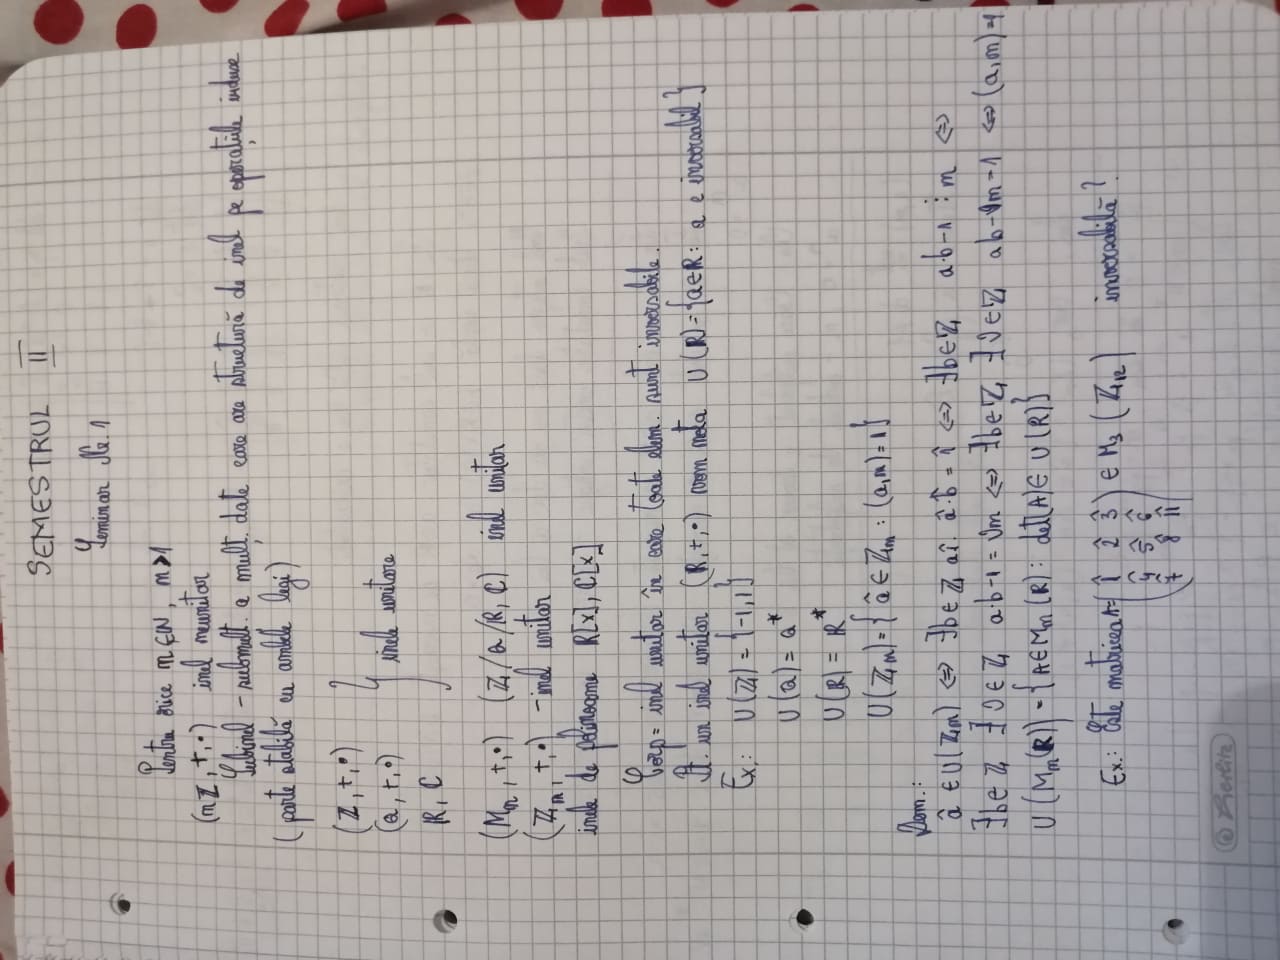 SEMESTRUL II
Seminar Nr. 1
Pentru orice m∈N, m>1
(mZ, +, ·) inel neunitar
Subinel - submult. a mult. date care are structură de inel pe operațiile induse
(parte stabilă cu ambele legi)
(Z, +, ·)
(Q, +, ·) } inele unitare
R, C
(Mn, +, ·) (Z/Q/R, C) inel unitar
(Zm, +, ·) - inel unitar
inele de polinoame R[x], C[x]
Corp = inel unitar în care toate elem. sunt inversabile.
Pt. un inel unitar (R, +, ·) vom nota U(R) = {a∈R: a e inversabil}
Ex.: U(Z) = {-1, 1}
U(Q) = Q*
U(R) = R*
U(Zm) = { â ∈ Zm : (a, m) = 1}
Dem.:
â ∈ U(Zm) ⇔ ∃b∈Z aî. â·b̂ = 1̂ ⇔ ∃b∈Z a·b-1 ⋮ m ⇔
∃b∈Z ∃v∈Z a·b-1 = vm ⇔ ∃b∈Z, ∃v∈Z ab-vm=1 ⇔ (a, m)=1
U(Mn(R)) = {A∈Mn(R): det(A) ∈ U(R)}
Ex.: Este matricea A = (1̂ 2̂ 3̂) ∈ M3 (Z12) inversabilă?
4̂ 5̂ 6̂
7̂ 8̂ 11̂